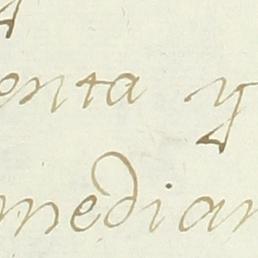 enta y
median